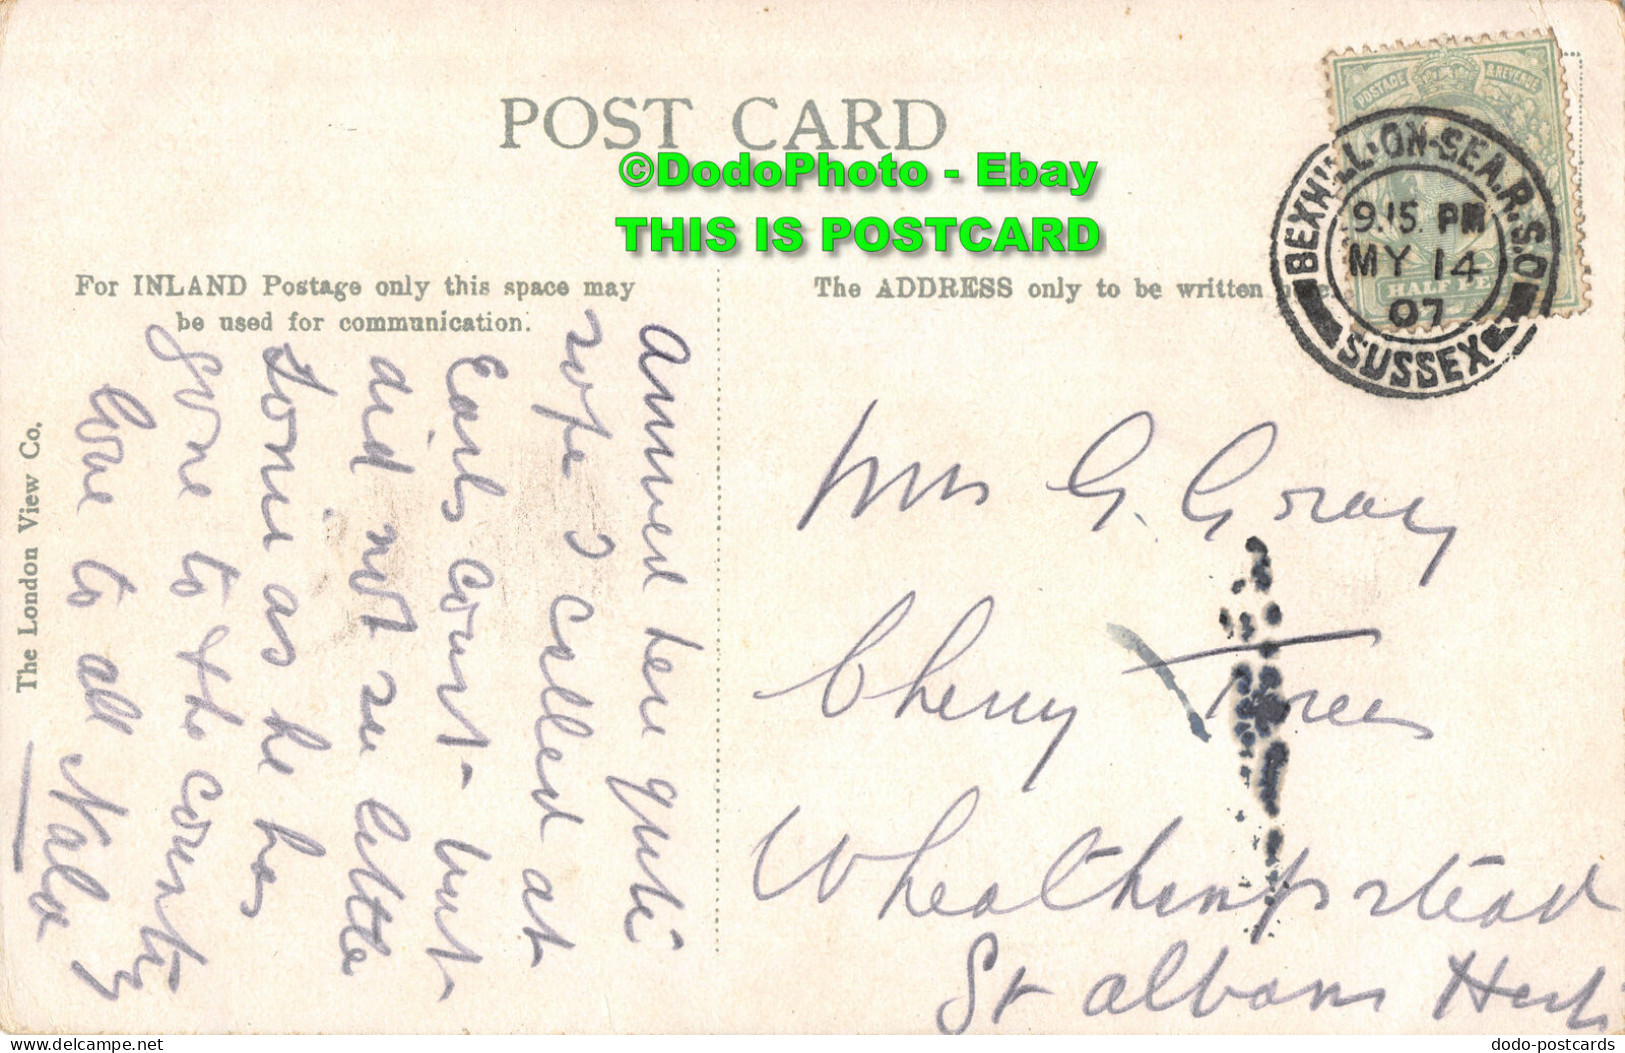 POST CARD
©DodoPhoto - Ebay
THIS IS POSTCARD
For INLAND Postage only this space may
be used for communication.
The ADDRESS only to be written
POSTAGE & REVENUE
HALF PE
BEXHILL-ON-SEA.R.S.O.
9.15. PM
MY 14
07
SUSSEX
The London View Co.
Arrived here quite
safe I called at
Earls Court - but
did not see Lottie
Lorrie as he has
gone to the country
love to all Nala
Mrs G. Gray
Cherry Trees
Wheathampstead
St Albans Herts
dodo-postcards